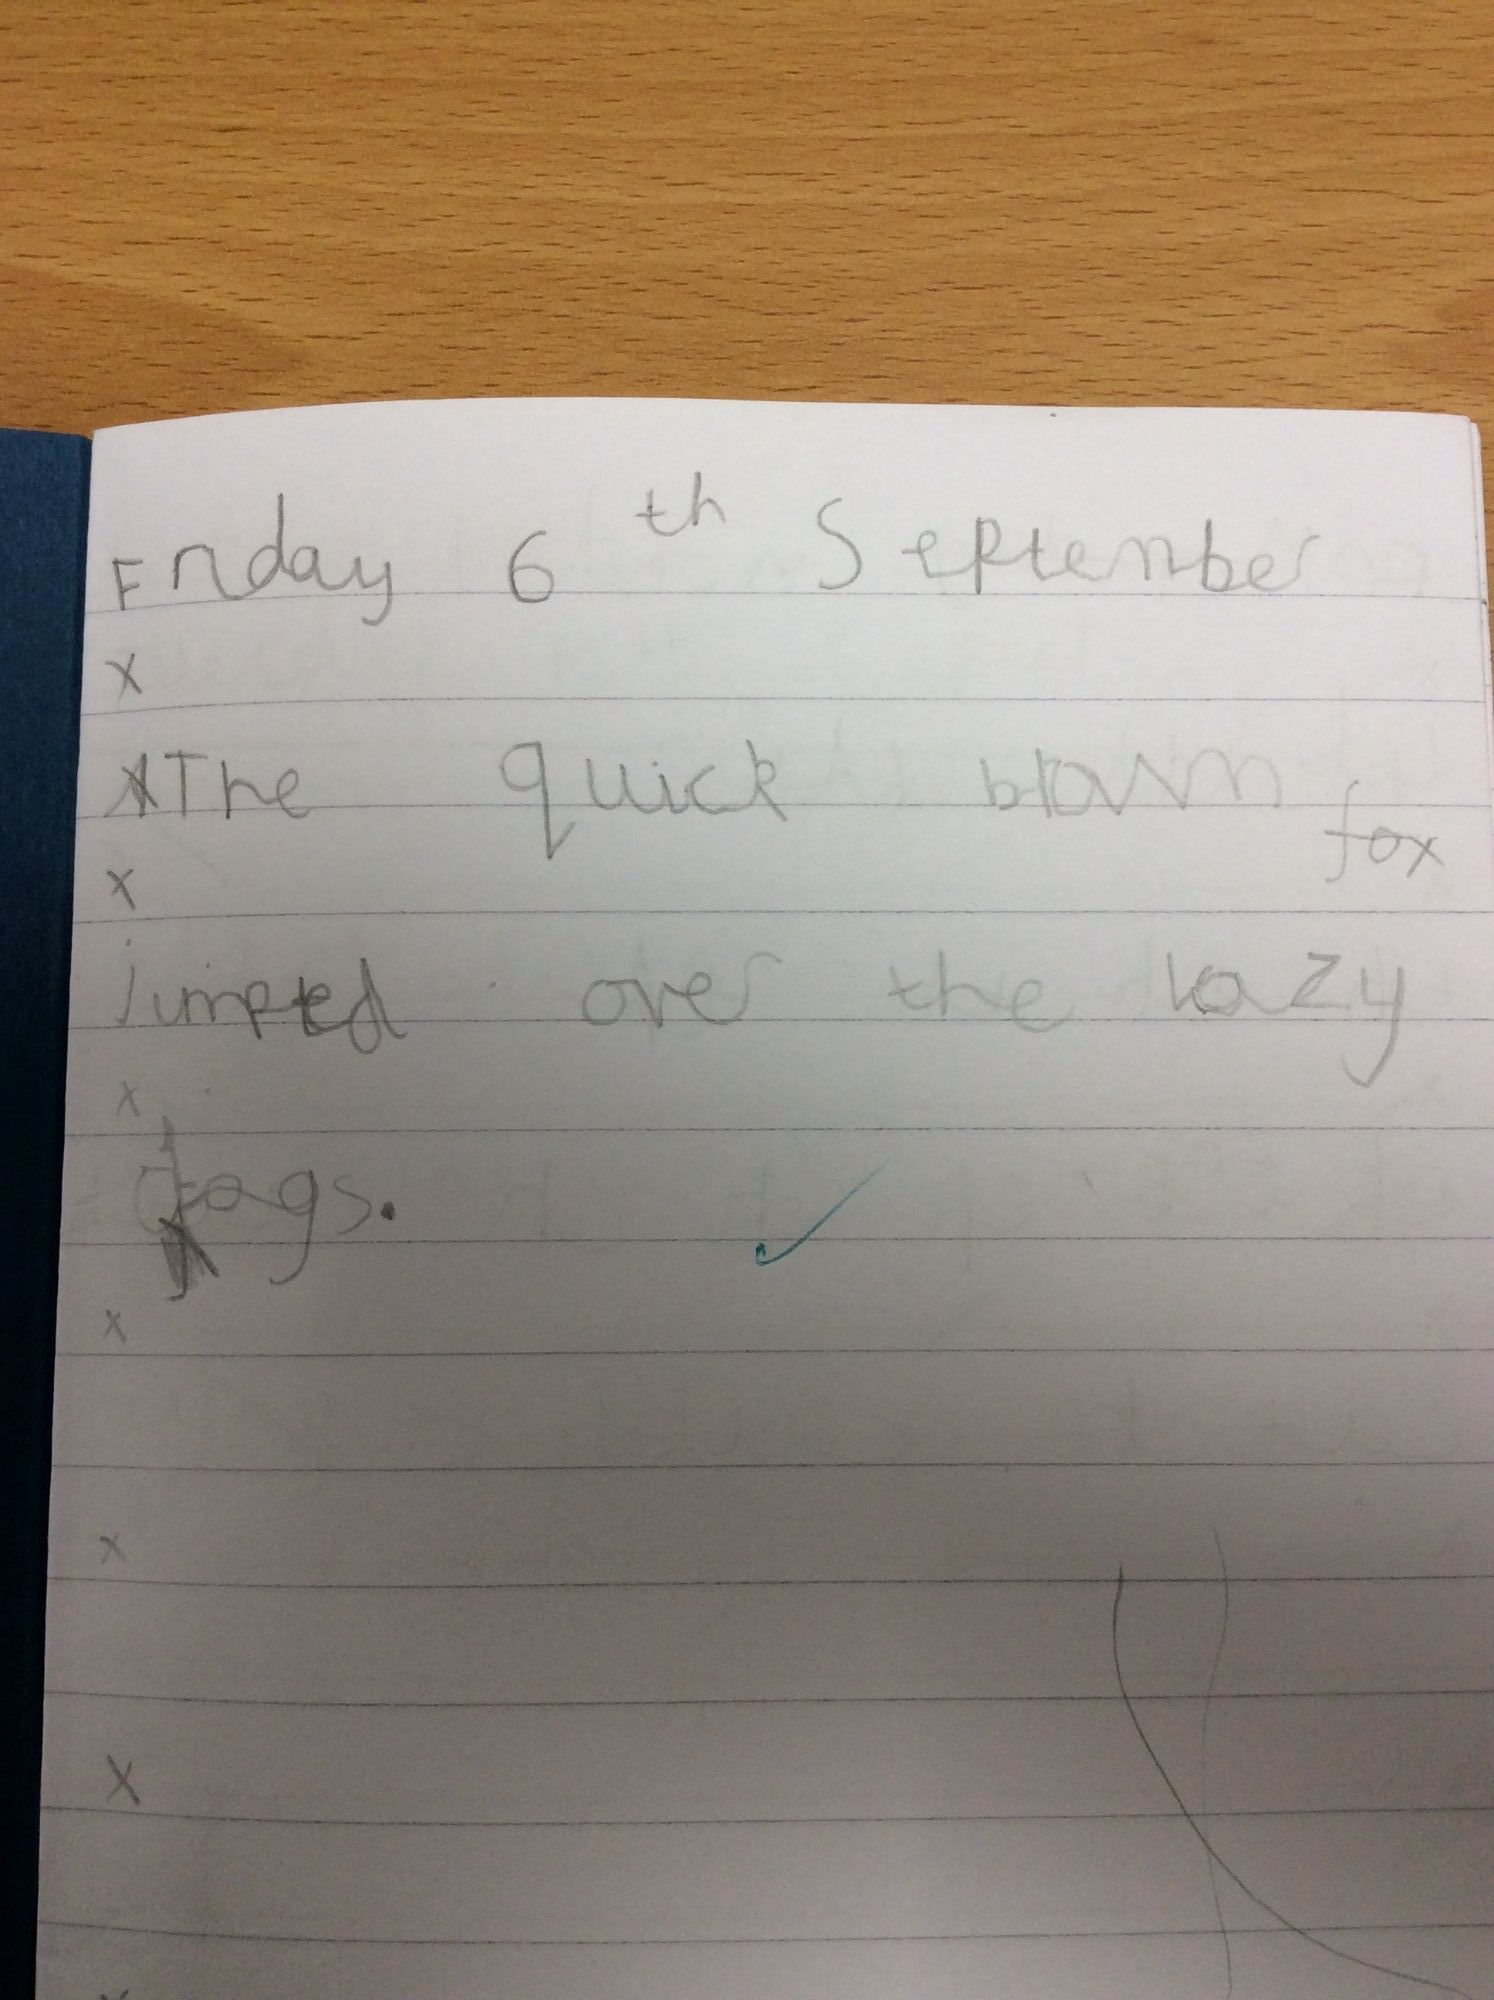 Friday 6th September
x
x The quick brown fox
x
jumped over the lazy
x
dogs.
x
x
x